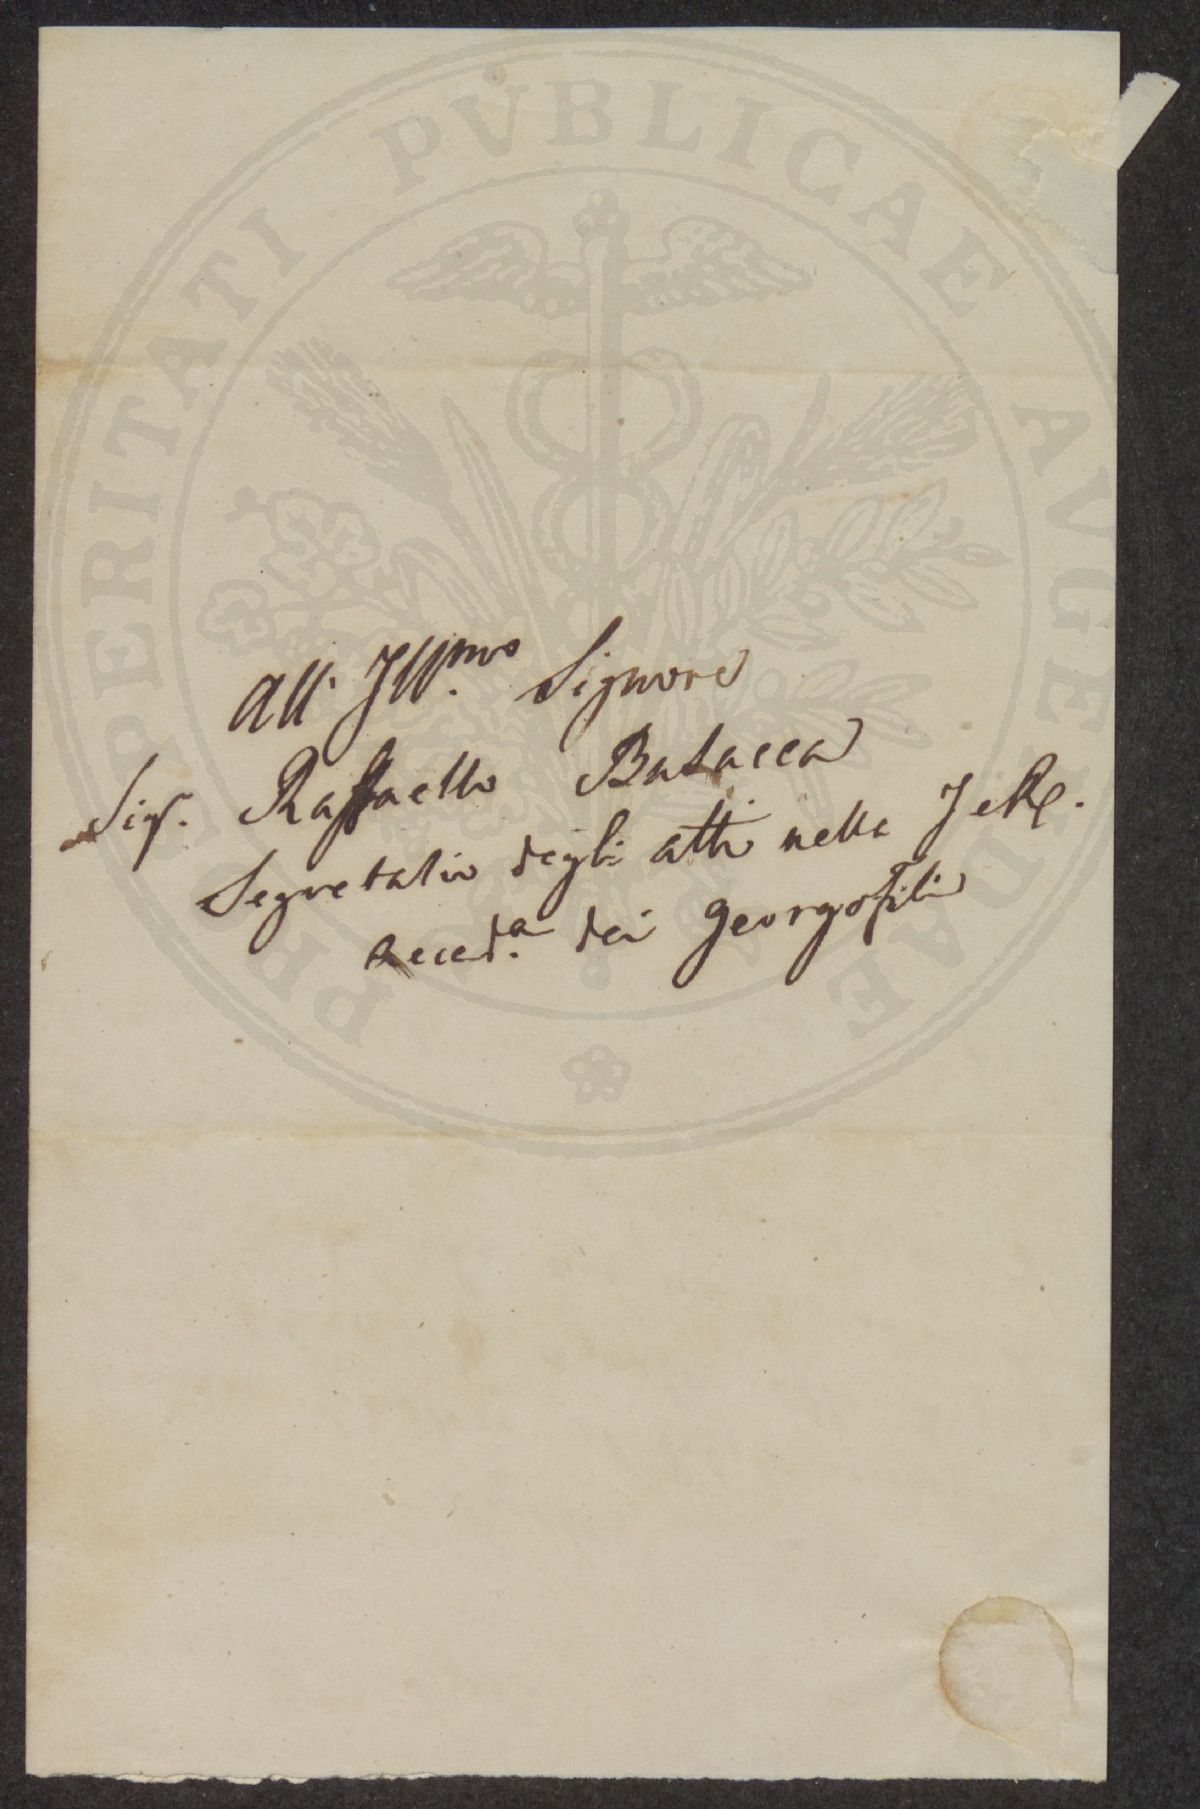 PROSPERITATI PVBLICAE AVGENDAE
All' Ill.mo Signore
Sig.r Raffaello Busacca
Segretario degli atti nella I e R.
Accad.a dei Georgofili